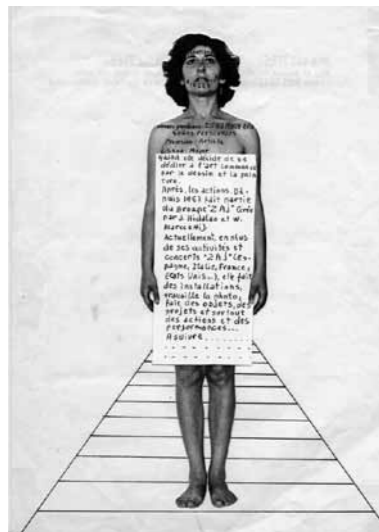 Profession: Artiste
quand elle décide de se
dédier à l'art commence
par le dessin et la pein
ture.
Après, les actions. De-
puis 1967 fait partie
du groupe "ZAJ" (Crée
par J. Hidalgo et W.
Marchetti).
Actuellement, en plus
de ses activités et
concerts "ZAJ" (Es-
pagne, Italie, France,
Etats Unis...), elle fait
des installations,
travaille la photo,
fait des objets, des
projets et surtout
des actions et des
performances...
A suivre........